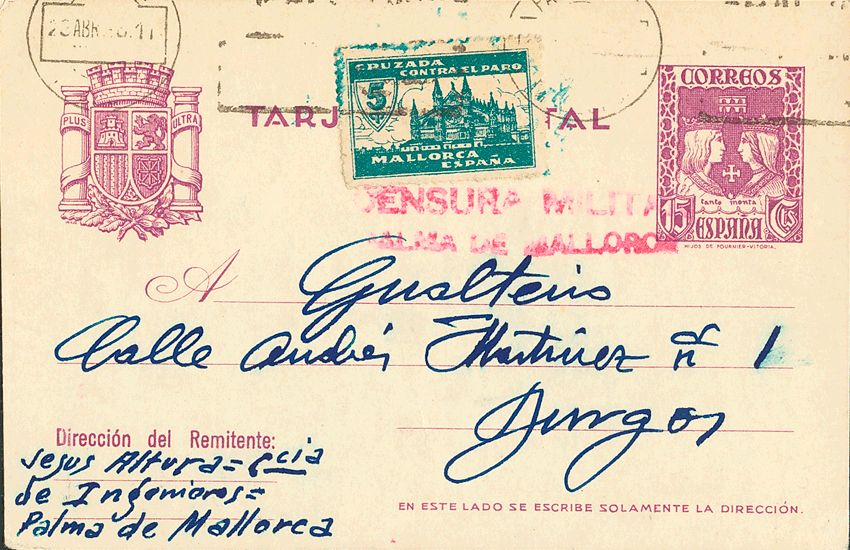 23 ABR
PLUS ULTRA
CRUZADA
CONTRA EL PARO
5
MALLORCA
ESPAÑA
TARJ TAL
CORREOS
tanto monta
15 CTS
ESPAÑA
HIJOS DE FOURNIER-VITORIA.
CENSURA MILITA
PALMA DE MALLORCA
A Gualterio
Calle Andrés Martínez nº 1
Burgos
Dirección del Remitente:
Jesus Altura = Ccia
de Ingenieros =
Palma de Mallorca
EN ESTE LADO SE ESCRIBE SOLAMENTE LA DIRECCIÓN.